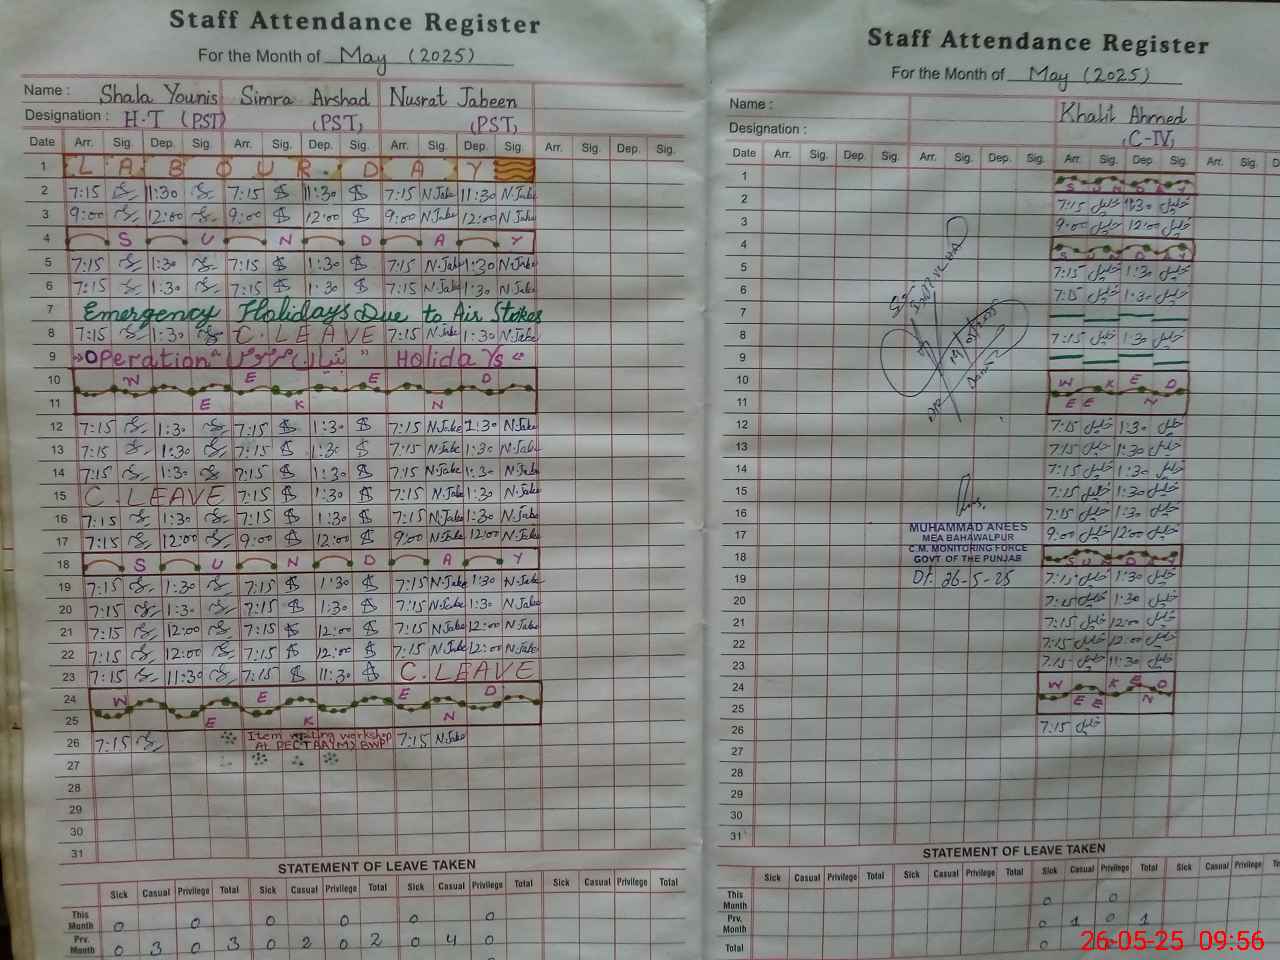 Staff Attendance Register
For the Month of May (2025)
Name : Shala Younis Simra Arshad Nusrat Jabeen
Designation : H.T (PST) (PST) (PST)
Date Arr. Sig. Dep. Sig. Arr. Sig. Dep. Sig. Arr. Sig. Dep. Sig. Arr. Sig. Dep. Sig.
1 LABOUR DAY
2 7:15 11:30 7:15 $ 11:30 $ 7:15 N.Jabe 11:30 N.Jabe
3 9:00 12:00 9:00 $ 12:00 $ 9:00 N.Jabe 12:00 N.Jabe
4 SUNDAY
5 7:15 1:30 7:15 $ 1:30 $ 7:15 N.Jabe 1:30 N.Jabe
6 7:15 1:30 7:15 $ 1:30 $ 7:15 N.Jabe 1:30 N.Jabe
7 Emergency Holidays Due to Air Stokes
8 7:15 1:30 C.LEAVE 7:15 N.Jabe 1:30 N.Jabe
9 "Operation" Holidays
10 W E E D
11 E K N
12 7:15 1:30 7:15 $ 1:30 $ 7:15 N.Jabe 1:30 N.Jabe
13 7:15 1:30 7:15 $ 1:30 $ 7:15 N.Jabe 1:30 N.Jabe
14 7:15 1:30 7:15 $ 1:30 $ 7:15 N.Jabe 1:30 N.Jabe
15 C.LEAVE 7:15 $ 1:30 $ 7:15 N.Jabe 1:30 N.Jabe
16 7:15 1:30 7:15 $ 1:30 $ 7:15 N.Jabe 1:30 N.Jabe
17 7:15 12:00 9:00 $ 12:00 $ 9:00 N.Jabe 12:00 N.Jabe
18 SUNDAY
19 7:15 1:30 7:15 $ 1:30 $ 7:15 N.Jabe 1:30 N.Jabe
20 7:15 1:30 7:15 $ 1:30 $ 7:15 N.Jabe 1:30 N.Jabe
21 7:15 12:00 7:15 $ 12:00 $ 7:15 N.Jabe 12:00 N.Jabe
22 7:15 12:00 7:15 $ 12:00 $ 7:15 N.Jabe 12:00 N.Jabe
23 7:15 11:30 7:15 $ 11:30 $ C.LEAVE
24 W E E D
25 E K N
26 7:15 Item writing workshop 7:15 N.Jabe
At PECTAA(M) BWP
27
28
29
30
31
STATEMENT OF LEAVE TAKEN
Sick Casual Privilege Total Sick Casual Privilege Total Sick Casual Privilege Total Sick Casual Privilege Total
This Month 0 0 0 0 0 0
Prv. Month 0 3 0 3 0 2 0 2 0 4 0
Staff Attendance Register
For the Month of May (2025)
Name : Khalil Ahmed
Designation : (C-IV)
Date Arr. Sig. Dep. Sig. Arr. Sig. Dep. Sig. Arr. Sig. Dep. Sig. Arr. Sig. D
1 SUNDAY
2 7:15 خلیل 11:30 خلیل
3 9:00 خلیل 12:00 خلیل
4 SUNDAY
5 7:15 خلیل 1:30 خلیل
6 7:15 خلیل 1:30 خلیل
7
8 7:15 خلیل 1:30 خلیل
9
10 W K E D
11 E E N
12 7:15 خلیل 1:30 خلیل
13 7:15 خلیل 1:30 خلیل
14 7:15 خلیل 1:30 خلیل
15 7:15 خلیل 1:30 خلیل
16 7:15 خلیل 1:30 خلیل
17 9:00 خلیل 12:00 خلیل
18 SUNDAY
19 7:15 خلیل 1:30 خلیل
20 7:15 خلیل 1:30 خلیل
21 7:15 خلیل 12:00 خلیل
22 7:15 خلیل 12:00 خلیل
23 7:15 خلیل 11:30 خلیل
24 W K E D
25 E E N
26 7:15 خلیل
27
28
29
30
31
MUHAMMAD ANEES
MEA BAHAWALPUR
C.M. MONITORING FORCE
GOVT OF THE PUNJAB
Dt. 26-5-25
STATEMENT OF LEAVE TAKEN
Sick Casual Privilege Total Sick Casual Privilege Total Sick Casual Privilege Total Sick Casual Privilege
This Month 0 0
Prv. Month 0 1 0 1
Total 0
26-05-25 09:56